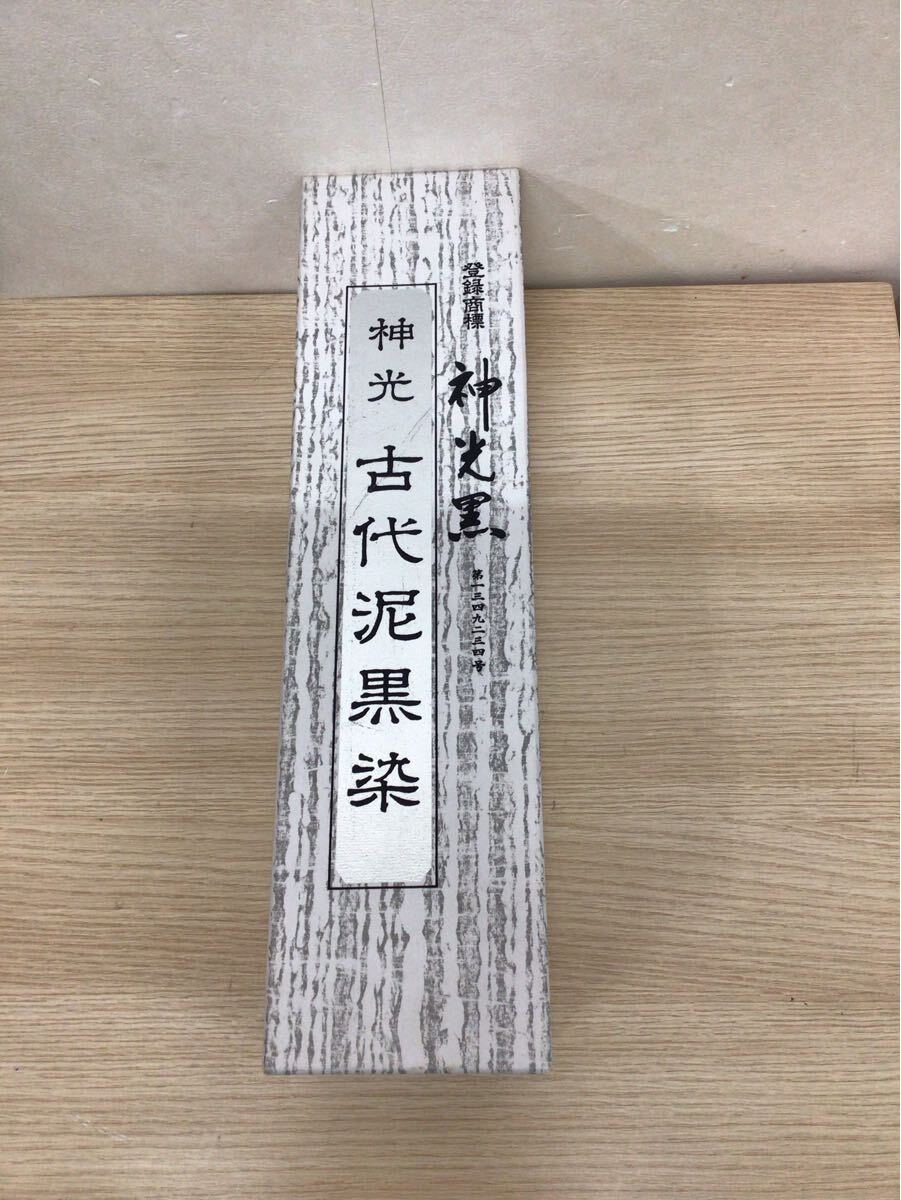 登録商標
神光黒
第一三四九二三四号
神光 古代泥黒染